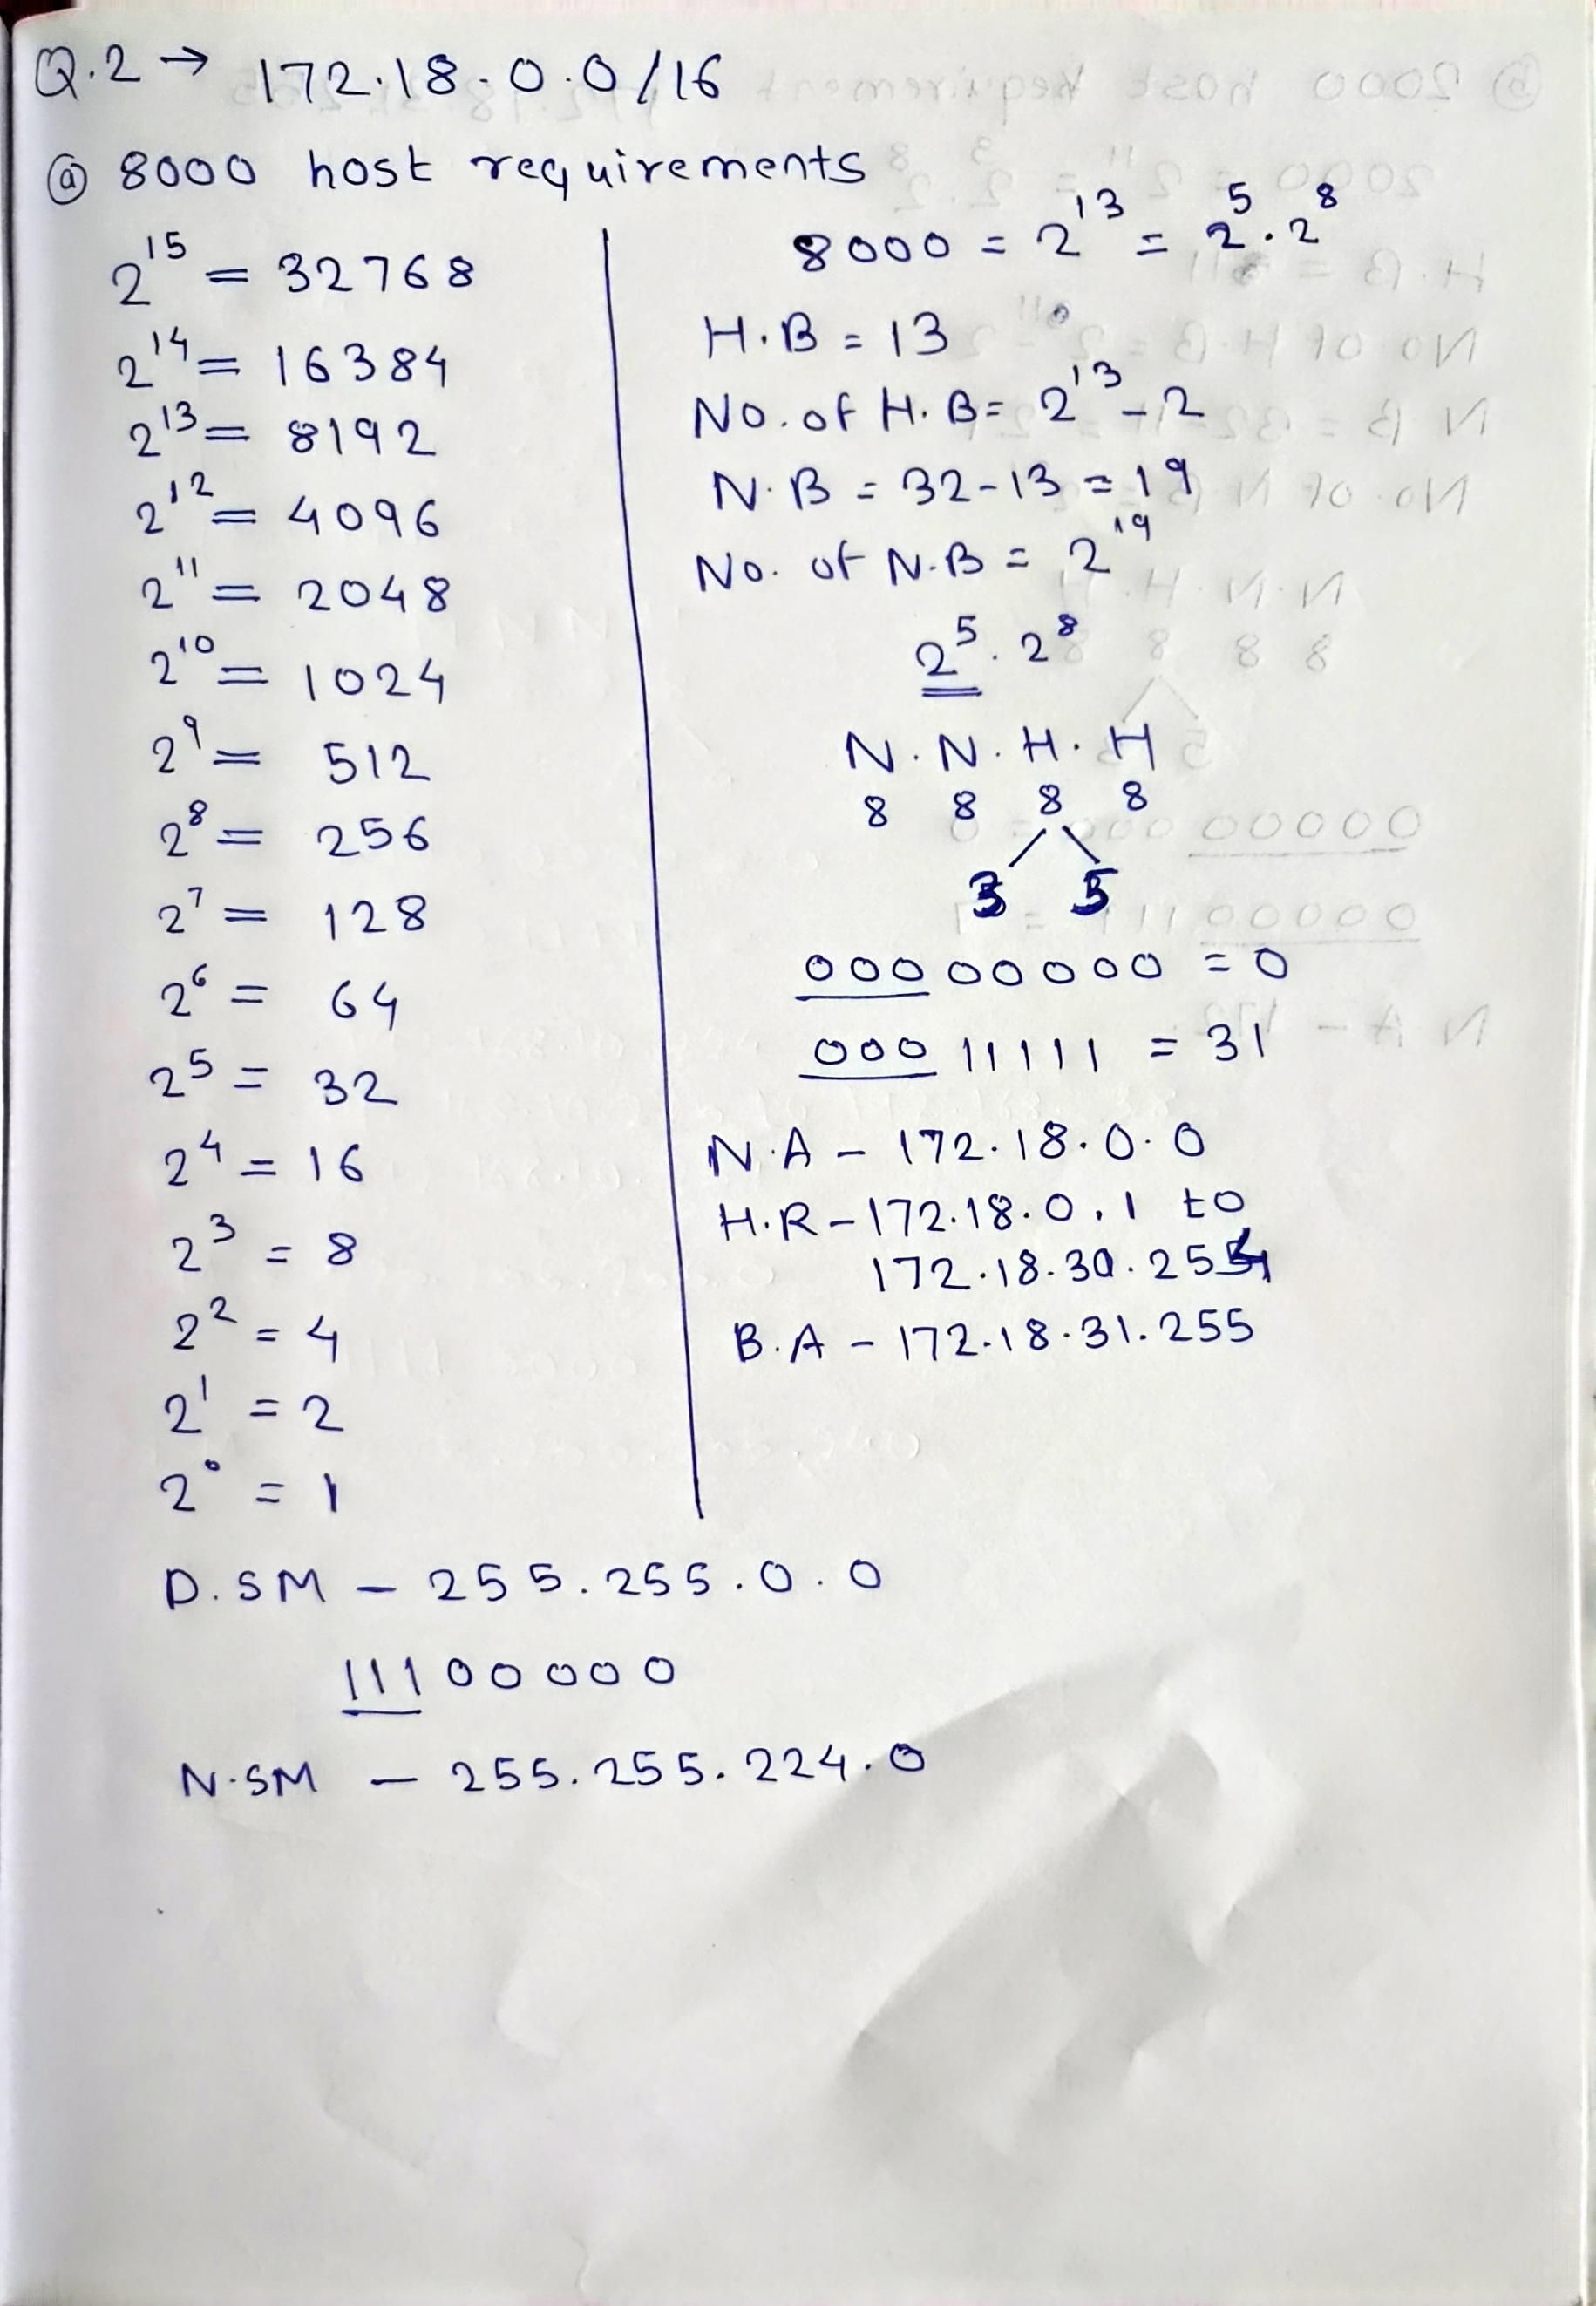 Q.2 → 172.18.0.0/16
ⓐ 8000 host requirements
2¹⁵ = 32768
2¹⁴ = 16384
2¹³ = 8192
2¹² = 4096
2¹¹ = 2048
2¹⁰ = 1024
2⁹ = 512
2⁸ = 256
2⁷ = 128
2⁶ = 64
2⁵ = 32
2⁴ = 16
2³ = 8
2² = 4
2¹ = 2
2⁰ = 1
8000 = 2¹³ = 2⁵.2⁸
H.B = 13
No. of H.B = 2¹³-2
N.B = 32-13 = 19
No. of N.B = 2¹⁹
2⁵.2⁸
N.N.H.H
8 8 8 8
3 5
00000000 = 0
00011111 = 31
N.A - 172.18.0.0
H.R - 172.18.0.1 to
172.18.30.254
B.A - 172.18.31.255
D.SM - 255.255.0.0
11100000
N.SM - 255.255.224.0